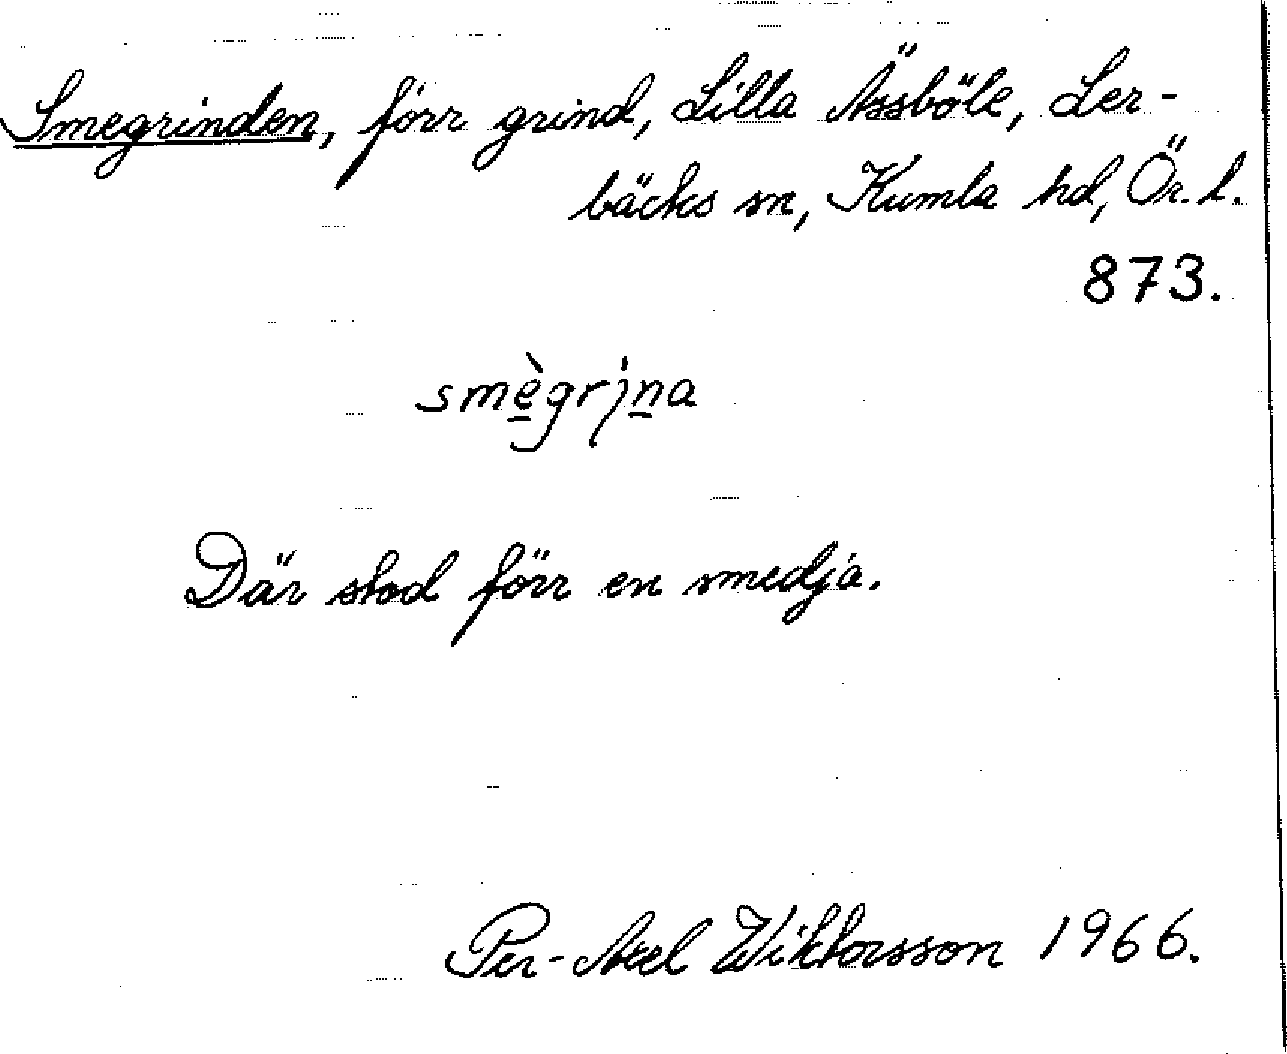 Smegrinden, förr grind, Lilla Ässböle, Ler-
bäcks sn, Kumla hd, Ör. l.
873.
smègrı̣na
Där stod förr en smedja.
Per-Axel Wiktorsson 1966.